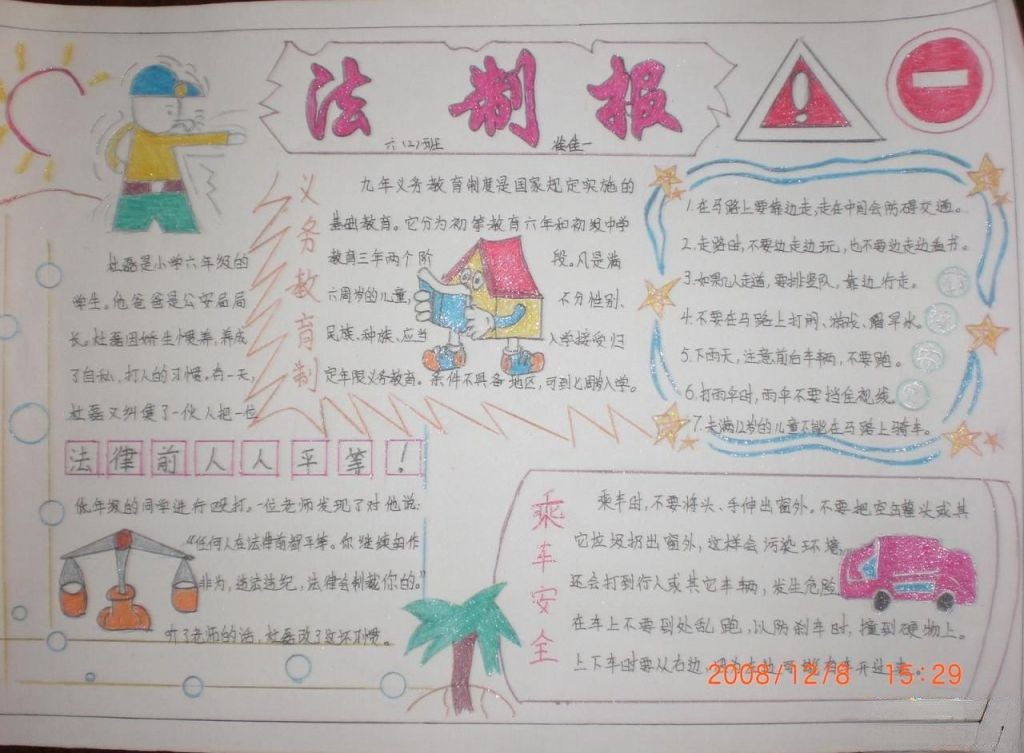 法制报
六(2)班
义务教育制
九年义务教育制度是国家规定实施的
基础教育。它分为初等教育六年和初级中学
教育三年两个阶段。凡是满
六周岁的儿童,不分性别、
民族、种族、应当入学接受归
定年限义务教育。条件不具备地区,可到七周岁入学。
1.在马路上要靠边走,走在中间会防碍交通。
2.走路时,不要边走边玩,也不要边走边看书。
3.如果几人走道,要排竖队,靠边行走。
4.不要在马路上打闹、游戏、溜旱冰。
5.下雨天,注意前后车辆,不要跑。
6.打雨伞时,雨伞不要挡住视线。
7.未满12岁的儿童不能在马路上骑车。
杜磊是小学六年级的
学生。他爸爸是公安局局
长。杜磊因娇生惯养,养成
了自私,打人的习惯。有一天,
杜磊又纠集了一伙人把一位
法律前人人平等!
低年级的同学进行殴打。一位老师发现了对他说:
“任何人在法律前都平等。你继续胡作
非为,违法违纪,法律会制裁你的。”
听了老师的话,杜磊改了这坏习惯。
乘车安全
乘车时,不要将头、手伸出窗外。不要把空缶罐头或其
它垃圾扔出窗外,这样会污染环境,
还会打到行人或其它车辆,发生危险
在车上不要到处乱跑,以防刹车时,撞到硬物上。
上下车时要从右边
2008/12/8 15:29